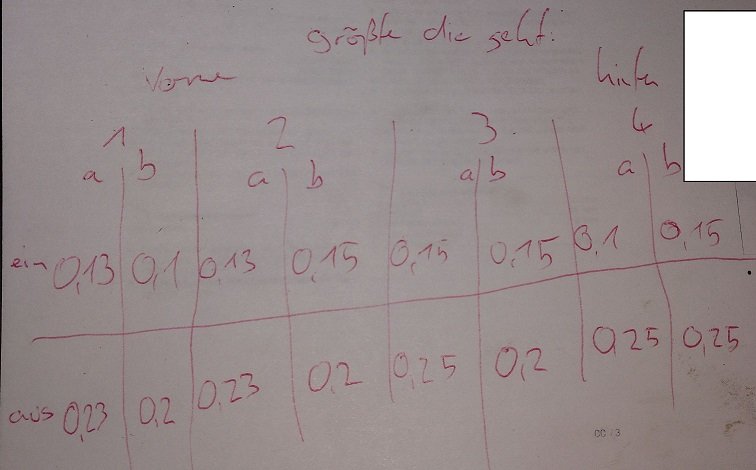 größte die geht.
vorne hinten
1 2 3 4
a b a b a b a b
ein 0,13 0,1 0,13 0,15 0,15 0,15 0,1 0,15
aus 0,23 0,2 0,23 0,2 0,25 0,2 0,25 0,25